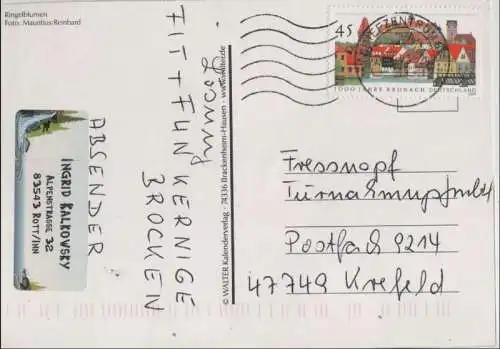 Ringelblumen
Foto: Mauritius/Reinhard
Lösung
FIT + FUN KERNIGE
BROCKEN
ABSENDER
INGRID KALKOVSKY
ALPENSTRASSE 32
83543 ROTT/INN
© WALTER Kalenderverlag · 74336 Brackenheim-Hausen · www.walter.de
45
1000 JAHRE KRONACH DEUTSCHLAND
BRIEFZENTRUM
Fressnapf
Postfach 9214
47749 Krefeld